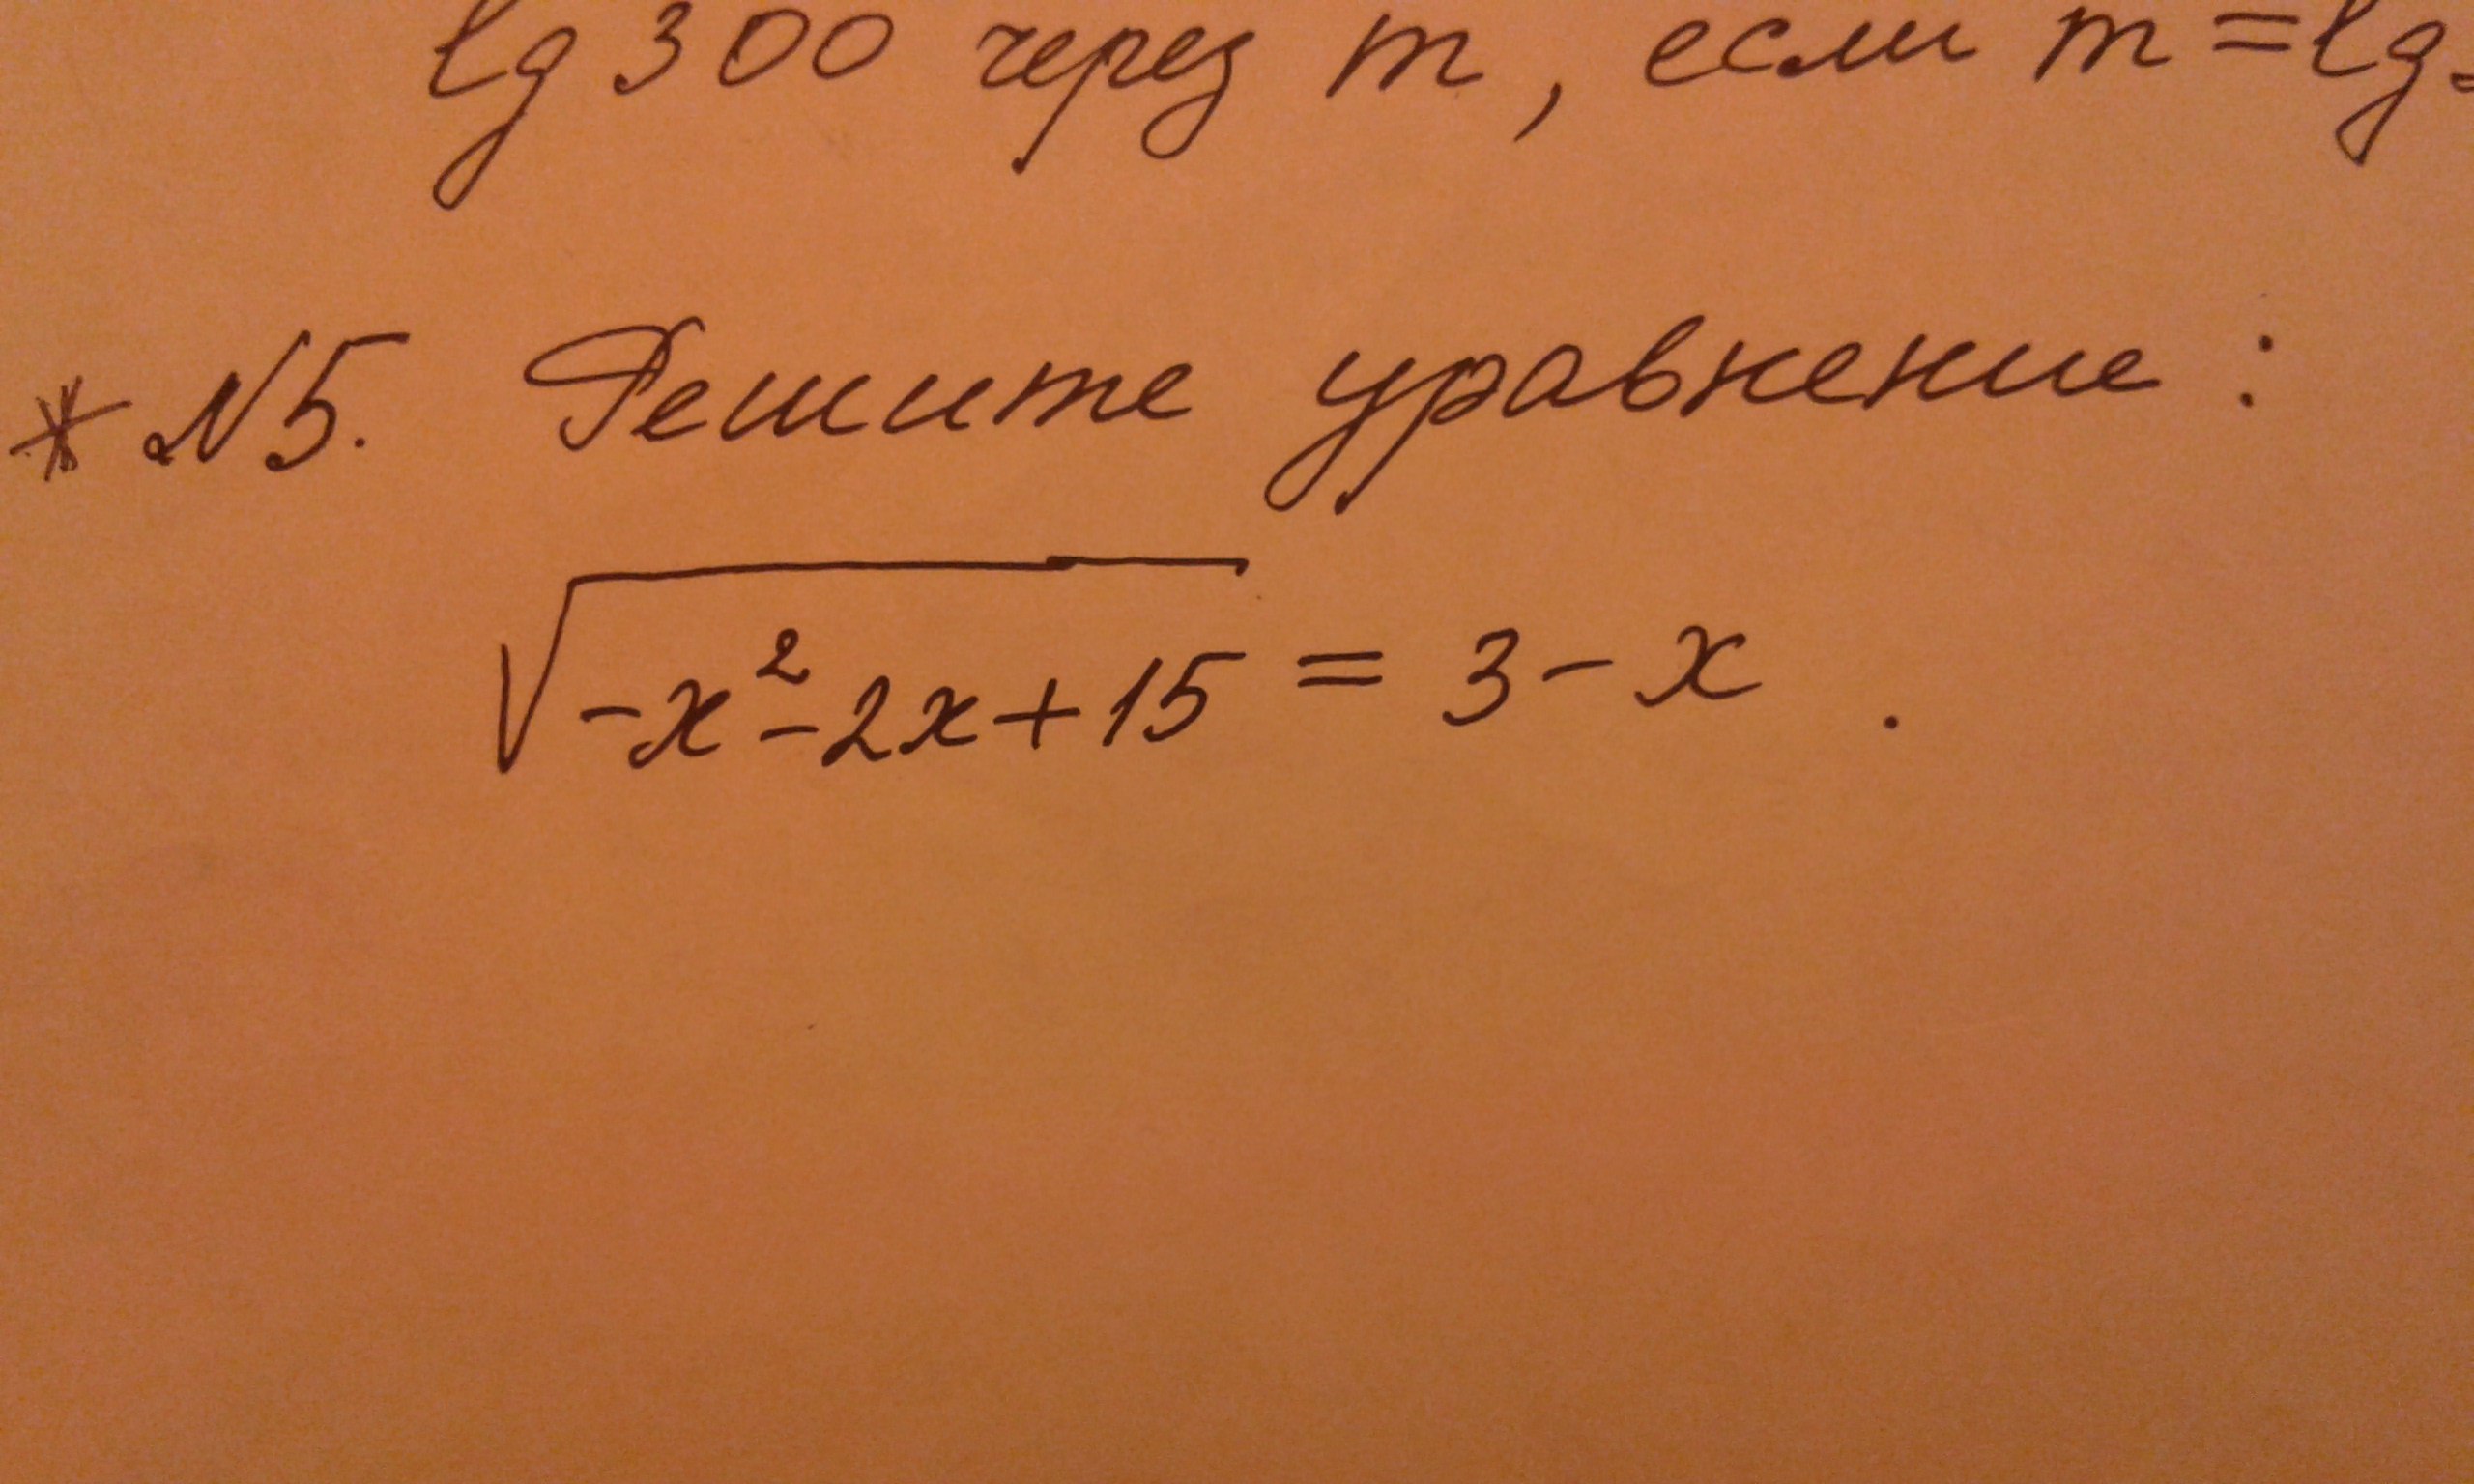 lg 300 через m, если m = lg
* N5. Решите уравнение:
√(-x² - 2x + 15) = 3 - x.